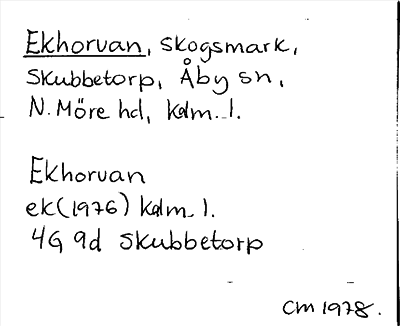 Ekhorvan, skogsmark,
Skubbetorp, Åby sn,
N. Möre hd, Kalm. l.
Ekhorvan
ek (1976) Kalm. l.
4G 9d Skubbetorp
CM 1978.